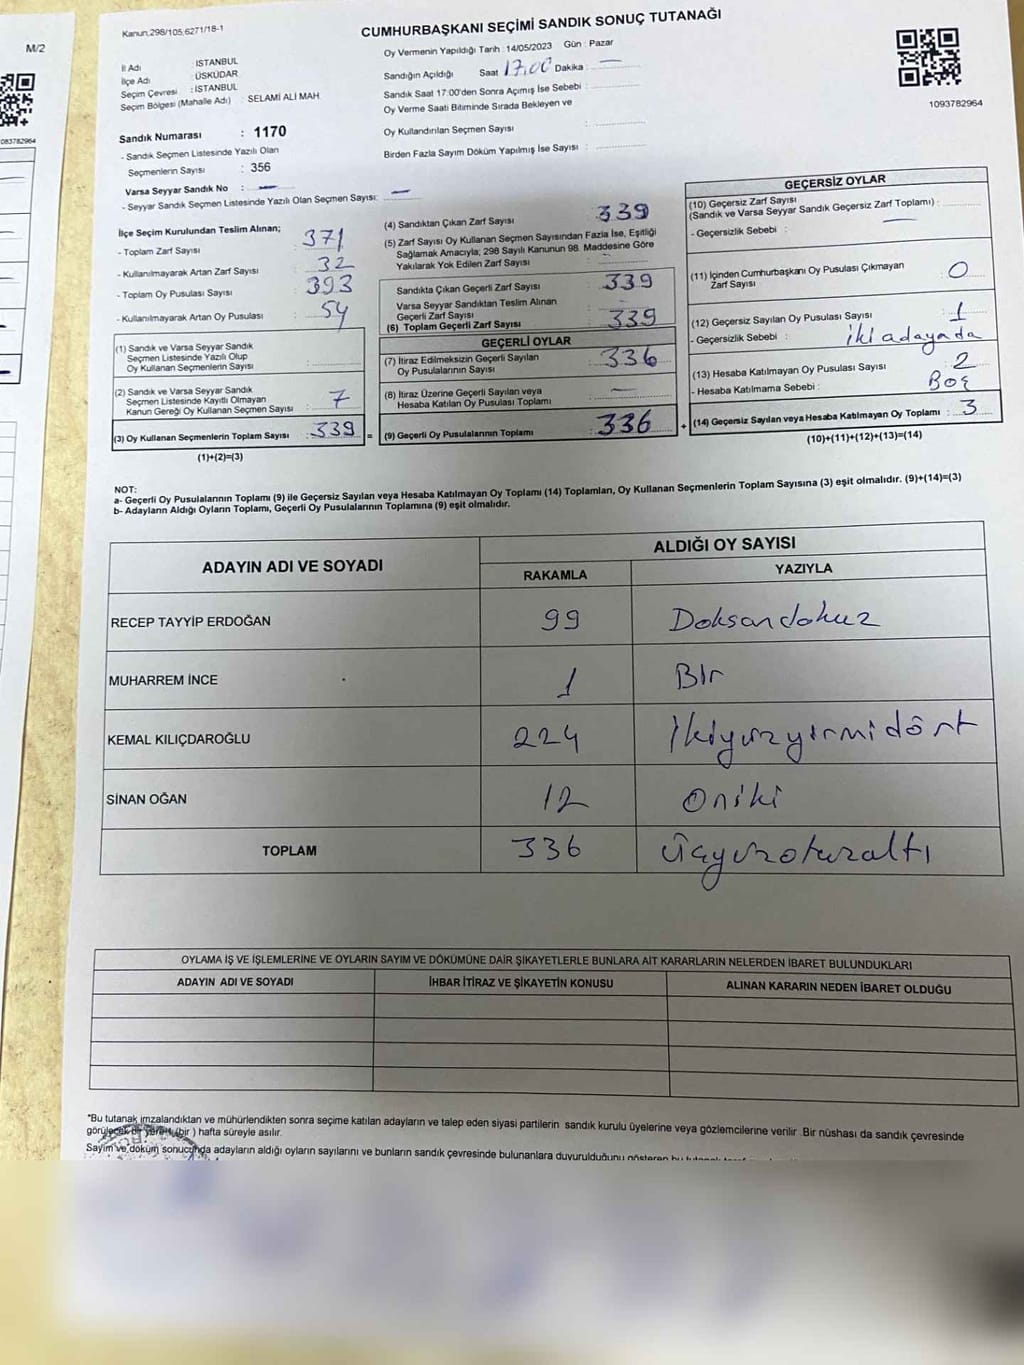 M/2
083782964
Kanun,298/105,6271/18-1
CUMHURBAŞKANI SEÇİMİ SANDIK SONUÇ TUTANAĞI
İl Adı : İSTANBUL
İlçe Adı : ÜSKÜDAR
Seçim Çevresi : İSTANBUL
Seçim Bölgesi (Mahalle Adı) : SELAMİ ALİ MAH
Sandık Numarası : 1170
- Sandık Seçmen Listesinde Yazılı Olan
Seçmenlerin Sayısı : 356
Varsa Seyyar Sandık No : —
- Seyyar Sandık Seçmen Listesinde Yazılı Olan Seçmen Sayısı: —
Oy Vermenin Yapıldığı Tarih : 14/05/2023 Gün : Pazar
Sandığın Açıldığı Saat 17,00 Dakika : —
Sandık Saat 17:00'den Sonra Açımış İse Sebebi :
Oy Verme Saati Bitiminde Sırada Bekleyen ve
Oy Kullandırılan Seçmen Sayısı :
Birden Fazla Sayım Döküm Yapılmış İse Sayısı :
1093782964
İlçe Seçim Kurulundan Teslim Alınan;
- Toplam Zarf Sayısı : 371
- Kullanılmayarak Artan Zarf Sayısı : 32
- Toplam Oy Pusulası Sayısı : 393
- Kullanılmayarak Artan Oy Pusulası : 54
(1) Sandık ve Varsa Seyyar Sandık
Seçmen Listesinde Yazılı Olup
Oy Kullanan Seçmenlerin Sayısı :
(2) Sandık ve Varsa Seyyar Sandık
Seçmen Listesinde Kayıtlı Olmayan
Kanun Gereği Oy Kullanan Seçmen Sayısı : 7
(3) Oy Kullanan Seçmenlerin Toplam Sayısı : 339 =
(1)+(2)=(3)
(4) Sandıktan Çıkan Zarf Sayısı : 339
(5) Zarf Sayısı Oy Kullanan Seçmen Sayısından Fazla İse, Eşitliği
Sağlamak Amacıyla; 298 Sayılı Kanunun 98. Maddesine Göre
Yakılarak Yok Edilen Zarf Sayısı :
Sandıkta Çıkan Geçerli Zarf Sayısı : 339
Varsa Seyyar Sandıktan Teslim Alınan
Geçerli Zarf Sayısı :
(6) Toplam Geçerli Zarf Sayısı : 339
GEÇERLİ OYLAR
(7) İtiraz Edilmeksizin Geçerli Sayılan
Oy Pusulalarının Sayısı : 336
(8) İtiraz Üzerine Geçerli Sayılan veya
Hesaba Katılan Oy Pusulası Toplamı : —
(9) Geçerli Oy Pusulalarının Toplamı : 336 +
GEÇERSİZ OYLAR
(10) Geçersiz Zarf Sayısı
(Sandık ve Varsa Seyyar Sandık Geçersiz Zarf Toplamı) : —
- Geçersizlik Sebebi :
(11) İçinden Cumhurbaşkanı Oy Pusulası Çıkmayan
Zarf Sayısı : 0
(12) Geçersiz Sayılan Oy Pusulası Sayısı : 1
- Geçersizlik Sebebi : iki adayada
(13) Hesaba Katılmayan Oy Pusulası Sayısı : 2
- Hesaba Katılmama Sebebi : Boş
(14) Geçersiz Sayılan veya Hesaba Katılmayan Oy Toplamı : 3
(10)+(11)+(12)+(13)=(14)
NOT:
a- Geçerli Oy Pusulalarının Toplamı (9) ile Geçersiz Sayılan veya Hesaba Katılmayan Oy Toplamı (14) Toplamları, Oy Kullanan Seçmenlerin Toplam Sayısına (3) eşit olmalıdır. (9)+(14)=(3)
b- Adayların Aldığı Oyların Toplamı, Geçerli Oy Pusulalarının Toplamına (9) eşit olmalıdır.
ADAYIN ADI VE SOYADI ALDIĞI OY SAYISI
RAKAMLA YAZIYLA
RECEP TAYYİP ERDOĞAN 99 Doksandokuz
MUHARREM İNCE 1 Bir
KEMAL KILIÇDAROĞLU 224 İkiyüzyirmidört
SİNAN OĞAN 12 Oniki
TOPLAM 336 Üçyüzotuzaltı
OYLAMA İŞ VE İŞLEMLERİNE VE OYLARIN SAYIM VE DÖKÜMÜNE DAİR ŞİKAYETLERLE BUNLARA AİT KARARLARIN NELERDEN İBARET BULUNDUKLARI
ADAYIN ADI VE SOYADI İHBAR İTİRAZ VE ŞİKAYETİN KONUSU ALINAN KARARIN NEDEN İBARET OLDUĞU
*Bu tutanak imzalandıktan ve mühürlendikten sonra seçime katılan adayların ve talep eden siyasi partilerin sandık kurulu üyelerine veya gözlemcilerine verilir .Bir nüshası da sandık çevresinde
görülecek bir yere 1 (bir ) hafta süreyle asılır.
Sayım ve döküm sonucunda adayların aldığı oyların sayılarını ve bunların sandık çevresinde bulunanlara duyurulduğunu gösteren bu